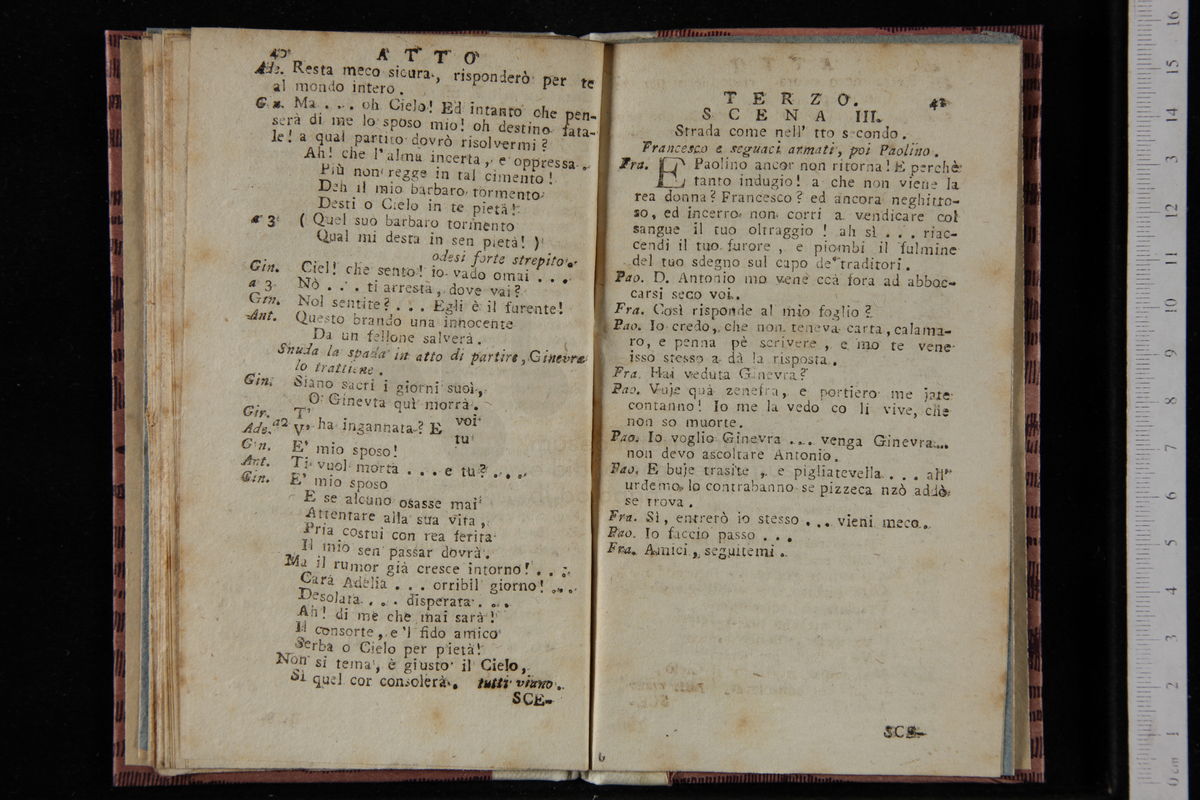 40 ATTO
Ade. Resta meco sicura, risponderò per te
al mondo intero.
Gin. Ma . . . oh Cielo! Ed intanto che pen-
serà di me lo sposo mio! oh destino fata-
le! a qual partito dovrò risolvermi?
Ah! che l'alma incerta, e oppressa
Più non regge in tal cimento!
Deh il mio barbaro tormento
Desti o Cielo in te pietà!
a 3 ( Quel suo barbaro tormento
Qual mi desta in sen pietà! )
odesi forte strepito.
Gin. Ciel! che sento! io vado omai . . .
a 3 Nò . . . ti arresta, dove vai?
Gin. Nol sentite? . . . Egli è il furente!
Ant. Questo brando una innocente
Da un fellone salverà.
Snuda la spada in atto di partire, Ginevra
lo trattiene.
Gin. Siano sacri i giorni suoi,
O Ginevra quì morrà.
Gir. T' voi
Ade. a2 V' ha ingannata? E tu
Gin. E' mio sposo!
Ant. Ti vuol morta . . . e tu? . . .
Gin. E' mio sposo
E se alcuno osasse mai
Attentare alla sua vita,
Pria costui con rea ferita
Il mio sen passar dovrà.
Ma il rumor già cresce intorno! . . .
Cara Adelia . . . orribil giorno! . . .
Desolata . . . disperata . . .
Ah! di me che mai sarà!
Il consorte, e 'l fido amico
Serba o Cielo per pietà!
Non si tema, è giusto il Cielo,
Si quel cor consolerà. tutti viano.
SCE-
TERZO. 41
SCENA III.
Strada come nell' tto secondo.
Francesco e seguaci armati, poi Paolino.
Fra. E Paolino ancor non ritorna! E perchè
tanto indugio! a che non viene la
rea donna? Francesco? ed ancora neghitto-
so, ed incerro non corri a vendicare col
sangue il tuo oltraggio! ah sì . . . riac-
cendi il tuo furore, e piombi il fulmine
del tuo sdegno sul capo de' traditori.
Pao. D. Antonio mo vene ccà fora ad abboc-
carsi seco voi.
Fra. Così risponde al mio foglio?
Pao. Io credo, che non teneva carta, calama-
ro, e penna pè scrivere, e mo te vene
isso stesso a dà la risposta.
Fra. Hai veduta Ginevra?
Pao. Vuje quà zenefra, e portiero me jate
contanno! Io me la vedo co li vive, che
non so muorte.
Pao. Io voglio Ginevra . . . venga Ginevra...
non devo ascoltare Antonio.
Pao. E buje trasite, e pigliatevella . . . all'
urdemo lo contrabanno se pizzeca nzò addò
se trova.
Fra. Sì, entrerò io stesso . . . vieni meco.
Pao. Io faccio passo . . .
Fra. Amici, seguitemi.
SCE-